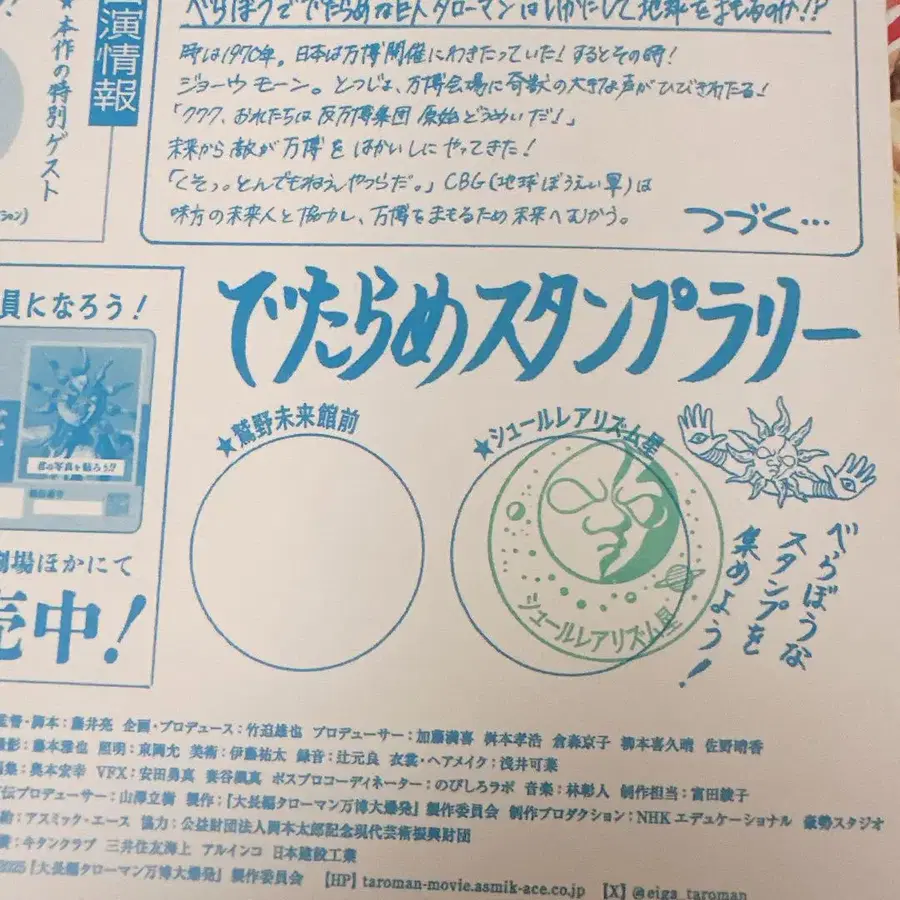 演情報
★本作の特別ゲスト
べらぼうででたらめな巨人タローマンはいかにして地球をまもるのか!?
時は1970年。日本は万博開催にわきたっていた!するとその時!
ジョーウ モーン。とつじょ、万博会場に奇獣の大きな声がひびきわたる!
「ククク、おれたちは反万博集団 原始どうめいだ!」
未来から敵が万博をはかいしにやってきた!
「くそっ。とんでもねえやつらだ。」CBG(地球ぼうえい軍)は
味方の未来人と協力し、万博をまもるため未来へむかう。
つづく…
員になろう!
君の写真を貼ろう!?
劇場ほかにて
売中!
でたらめスタンプラリー
★鷲野未来館前
★シュールレアリズム星
シュールレアリズム星
べらぼうな
スタンプを
集めよう!
監督・脚本:藤井亮 企画・プロデュース:竹迫雄也 プロデューサー:加藤満喜 桝本孝浩 倉森京子 柳本喜久晴 佐野晴香
撮影:藤本雅也 照明:東岡允 美術:伊藤祐太 録音:辻元良 衣裳・ヘアメイク:浅井可菜
編集:奥本宏幸 VFX:安田勇真 宮谷颯真 ポスプロコーディネーター:のびしろラボ 音楽:林彰人 制作担当:富田綾子
宣伝プロデューサー:山澤立樹 製作:『大長編タローマン万博大爆発』製作委員会 制作プロダクション:NHKエデュケーショナル 豪勢スタジオ
アスミック・エース 協力:公益財団法人岡本太郎記念現代芸術振興財団
キタンクラブ 三井住友海上 アルインコ 日本建設工業
2025『大長編タローマン万博大爆発』製作委員会 【HP】taroman-movie.asmik-ace.co.jp 【X】@eiga_taroman